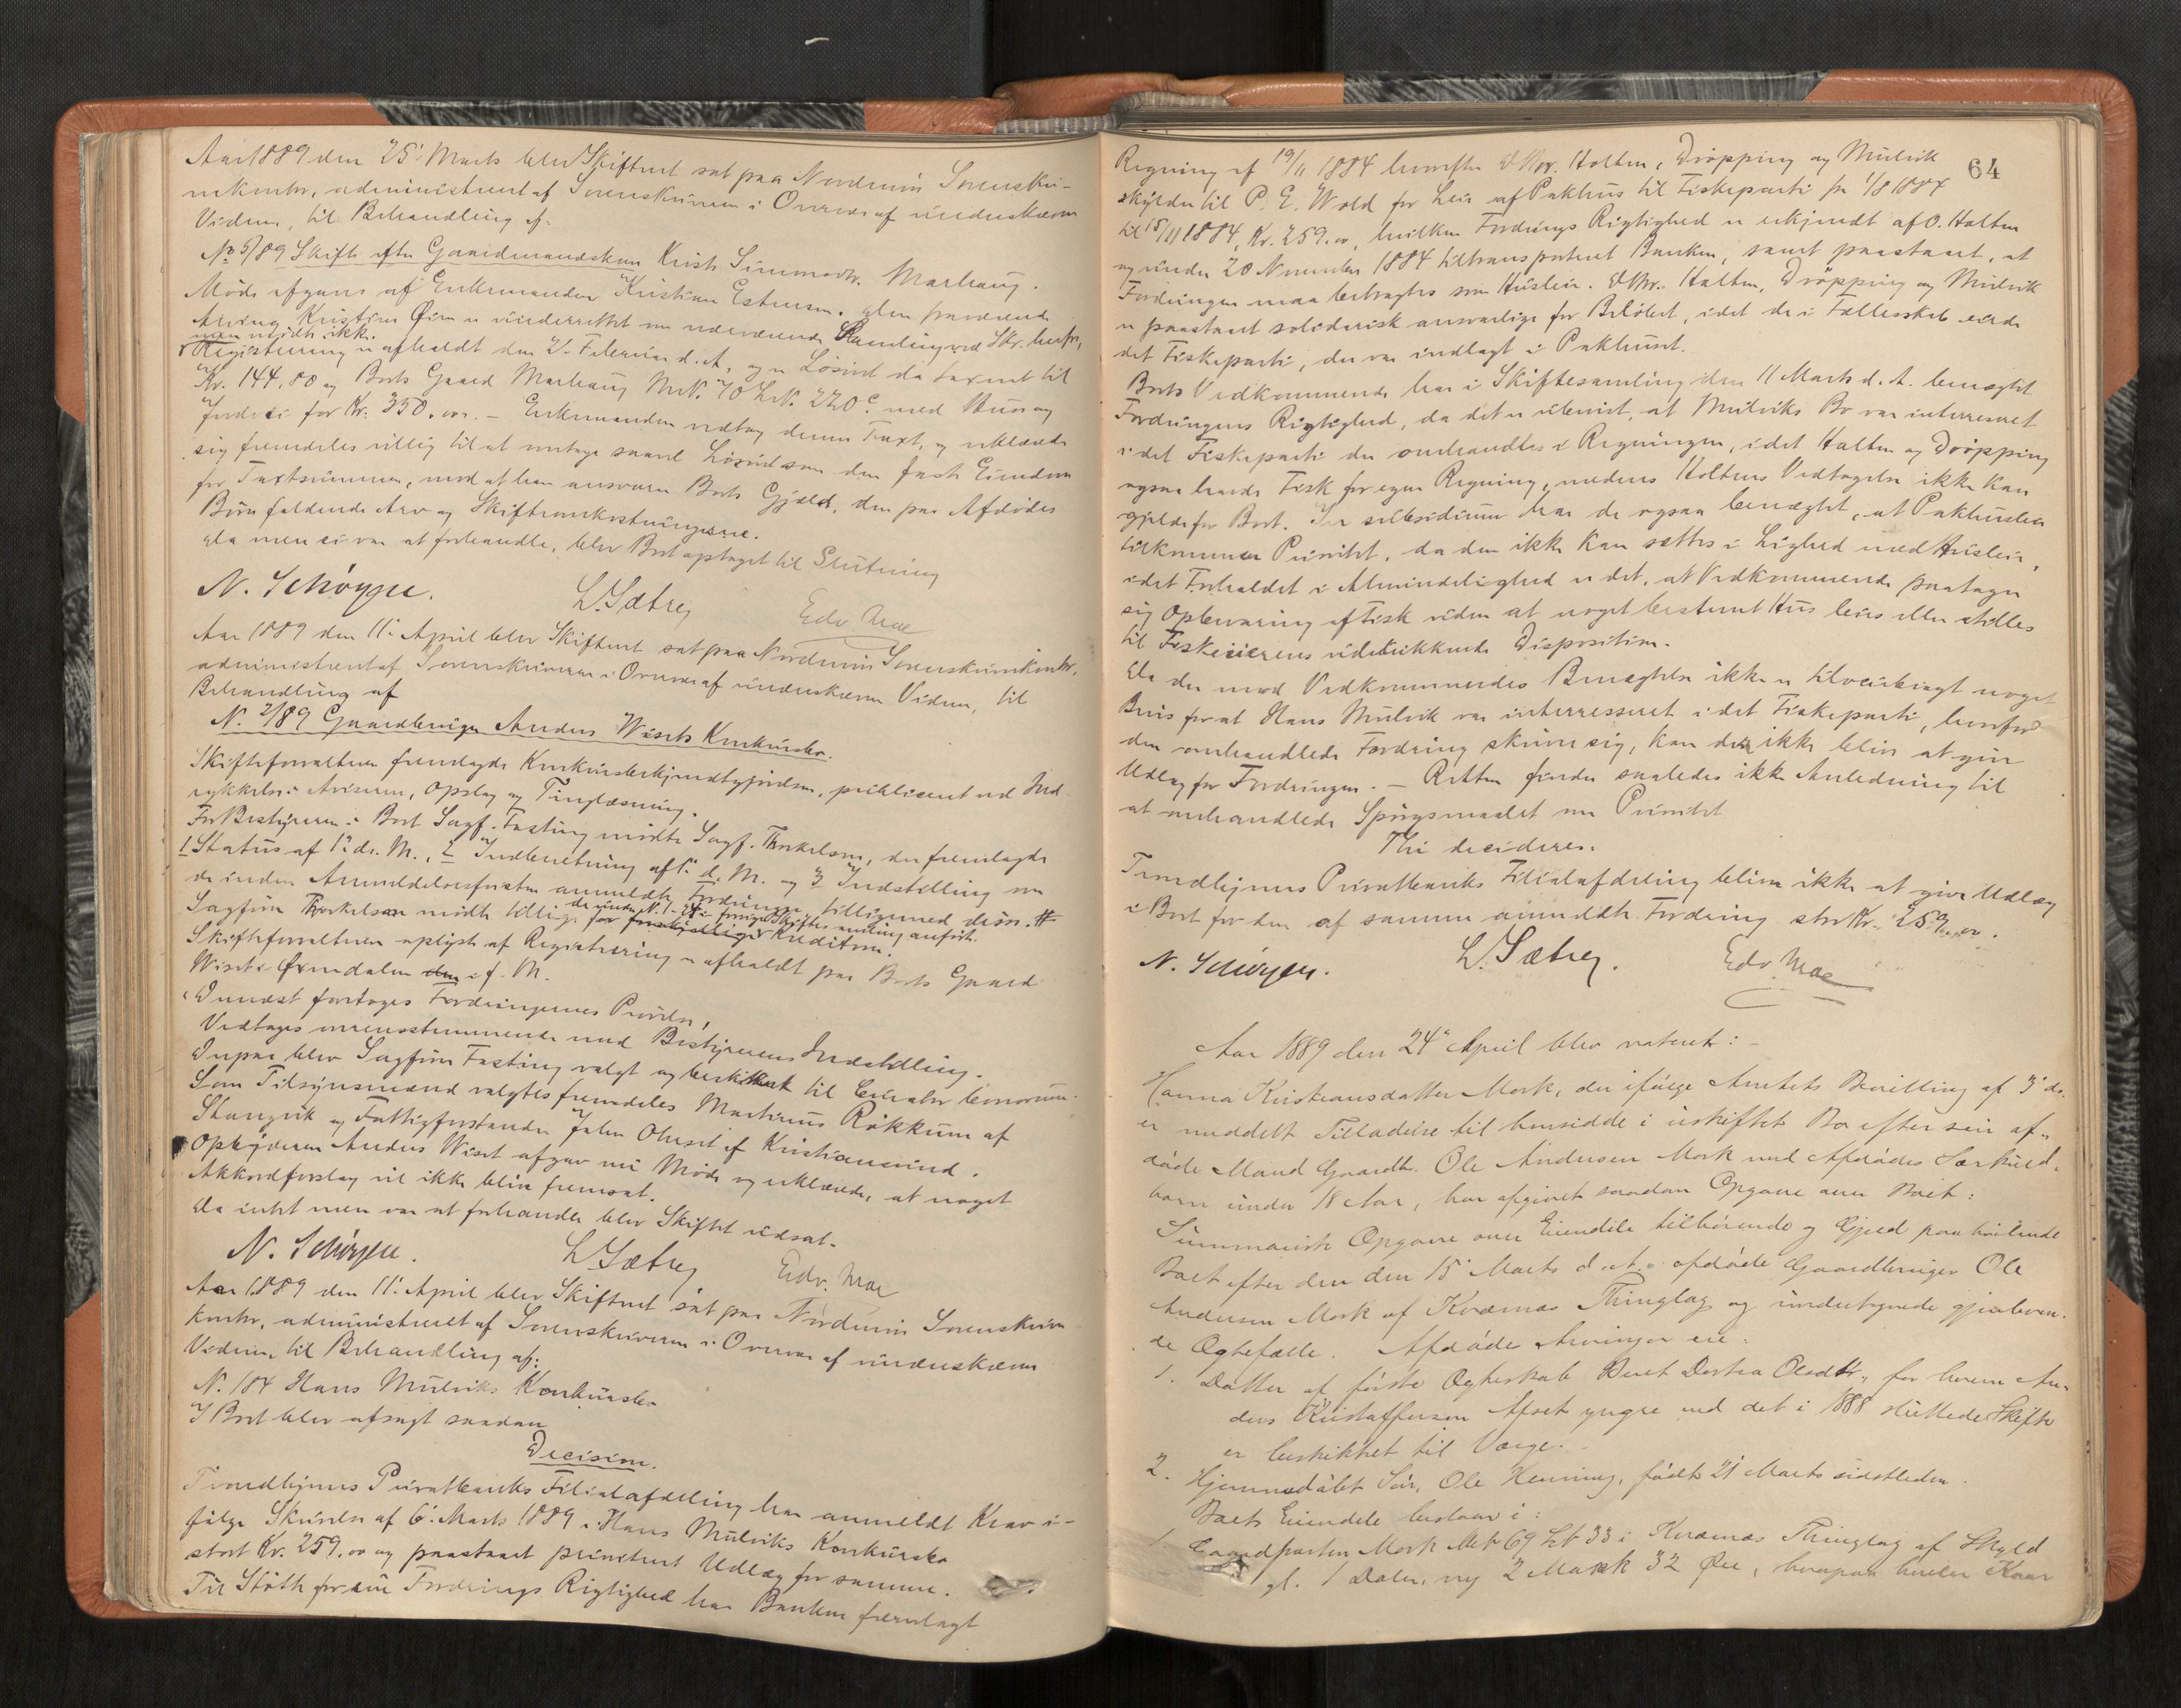 Aar 1889 den 25' Marts blev Skifteret sat paa Nordmøre Sorenskri-
verkontor, administreret af Sorenskriveren i Overvær af underskrevne
Vidner, til Behandling af:
No 5/89 Skifte efter Gaardmandskone Kirsti Simonsdtr. Marhaug.
Møde afgaves af Enkemanden Kristian Estensen. Den fraværende
Arving Kristine Øien er underrettet om nærværende Samling ved Skr. herfra,
men mødte ikke.
Registrering er afholdt den 2. Februar d. A., og er Løsøret da taxeret til
Kr. 144,80 og Boets Gaard Marhaug MrN. 70 LrN. 220c med Huse og
Jordvei for Kr. 350.00. – Enkemanden vedtog denne Taxt, og erklærede
sig fremdeles villig til at modtage saavel Løsøret som den faste Eiendom
for Taxtsummen, mod at han ansvarer Boets Gjæld, den paa Afdødes
Børn faldende Arv og Skifteomkostningerne.
Da mere ei var at forhandle, blev Boet optaget til Slutning
N. Schøyen. L. Sætrey Edv. Moe
Aar 1889 den 11' April blev Skifteret sat paa Nordmøre Sorenskriverkontor,
administreret af Sorenskriveren i Overvær af underskrevne Vidner, til
Behandling af
N. 2/89 Gaardbruger Anders Wiseths Konkursbo.
Skifteforvalteren fremlagde Konkursbekjendtgjørelsen, publiceret ved Ind-
rykkelse i Aviserne, Opslag og Tinglæsning.
For Bestyreren i Boet Sagf. Fasting mødte Sagf. Thorkelsen, der fremlagde
1 Status af 1' ds. M., 2 Indberetning af s. d. M. og 3 Indstilling om
de inden Anmeldelsesfristen anmeldte Fordringer tilligemed disse. #
de under N. 1-24 i forrige Skiftesamling anførte
Sagfører Thorkelsen mødte tillige for forskjellige Kreditorer.
Skifteforvalteren oplyste at Registrering er afholdt paa Boets Gaard
Wiseth i Øxendalen den i f. M.
Dernæst foretoges Fordringernes Prøvelse,
Vedtoges overensstemmende med Bestyrerens Indstilling.
Derpaa blev Sagfører Fasting valgt og beskikket til Curator bonorum.
Som Tilsynsmænd valgtes fremdeles Martinus Røkkum af
Stangvik og Fattigforstander John Oluset af Kristiansund.
Opbyderen Anders Wiset afgav nu Møde og erklærede, at noget
Akkordforslag vil ikke blive fremsat.
Da intet mere var at forhandle blev Skiftet udsat.
N. Schøyen. L. Sætrey Edv. Moe
Aar 1889 den 11' April blev Skifteret sat paa Nordmøre Sorenskriver
kontor, administreret af Sorenskriveren i Overvær af underskrevne
Vidner til Behandling af:
N. 184 Hans Mulviks Konkursbo
I Boet blev afsagt saadan
Decision.
Trondhjems Privatbanks Filialafdeling har anmeldt Krav i-
følge Skrivelse af 6' Marts 1889 i Hans Mulviks Konkursbo
stort Kr. 259.00 og paastaaet prioriteret Udlæg for samme.
Til Støtte for sin Fordrings Rigtighed har Banken fremlagt
64
Regning af 19/11 1884 hvorefter DHrr. Holten, Drøpping og Mulvik
skylder til P. E. Wold for Leie af Pakhus til Fiskeparti fra 1/8 1884
til 15/11 1884, Kr. 259.00, hvilken Fordrings Rigtighed er erkjendt af O. Holten
og under 20 November 1884 tiltransporteret Banken, samt paastaaet, at
Fordringen maa betragtes som Husleie. DHrr. Holten, Drøpping og Mulvik
er paastaaet solidarisk ansvarlige for Beløbet, idet de i Fællesskab eiede
det Fiskeparti, der var indlagt i Pakhuset.
Boets Vedkommende har i Skiftesamling den 11 Marts d. A. benægtet
Fordringens Rigtighed, da det er ubevist, at Mulviks Bo var interresseret
i det Fiskeparti der omhandles i Regningen, idet Holten og Drøpping
ogsaa havde Fisk for egen Regning, medens Holtens Vedtagelse ikke kan
gjælde for Boet. In subsidium har de ogsaa benægtet, at Pakhusleie
tilkommer Prioritet, da den ikke kan sættes i Lighed med Husleie,
idet Forholdet i Almindelighed er det, at Vedkommende paatager
sig Opbevaring af Fisk uden at noget bestemt Hus leies eller stilles
til Fiskeeierens udelukkende Disposition.
Da der mod Vedkommendes Benægtelse ikke er tilveiebragt noget
Bevis for at Hans Mulvik var interresseret i det Fiskeparti, hvorfra
den omhandlede Fordring skriver sig, kan der ikke blive at give
Udlæg for Fordringen. – Retten finder saaledes ikke Anledning til
at omhandlede Spørgsmaalet om Prioritet
Thi decideres:
Trondhjems Privatbanks Filialafdeling bliver ikke at give Udlæg
i Boet for den af samme anmeldte Fordring stor Kr. 259.00.
N. Schøyen. L. Sætrey. Edv. Moe
Aar 1889 den 24' April blev noteret: –
Hanna Kristiansdatter Mork, der ifølge Amtets Bevilling af 3' ds.
er meddelt Tilladelse til hensidde i uskiftet Bo efter sin af-
døde Mand Gaardb. Ole Andersen Mork med Afdødes Særkuld-
barn under 18 Aar, har afgivet saadan Opgave over Boet:
Summarisk Opgave over Eiendele tilhørende og Gjæld paahvilende
Boet efter den den 15' Marts d. A. afdøde Gaardbruger Ole
Andersen Mork af Kvernæs Thinglag og undertegnede gjenleven-
de Ægtefælle. Afdødes Arvinger ere:
1. Datter af første Ægteskab Beret Dortea Olsdtr., for hvem An-
ders Kristaffersen Aset yngre ved det i 1888 sluttede Skifte
er beskikket til Værge.
2. Hjemmedøbt Søn, Ole Henning, født 21 Marts sidstleden.
Boets Eiendele bestaar i:
1. Gaardparten Mork MrN 69 LN 33 i Kvernæs Thinglag af Skyld
gl. 1 Daler, ny 2 Mark 32 Øre, hvorpaa hviler Kaar